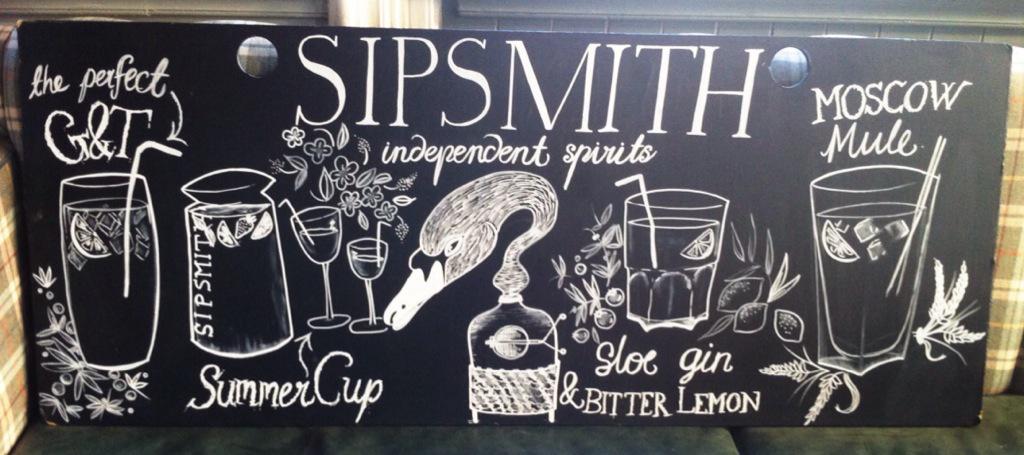 SIPSMITH
independent spirits
the perfect
G&T
SIPSMITH
Summer Cup
sloe gin
& BITTER LEMON
MOSCOW
Mule